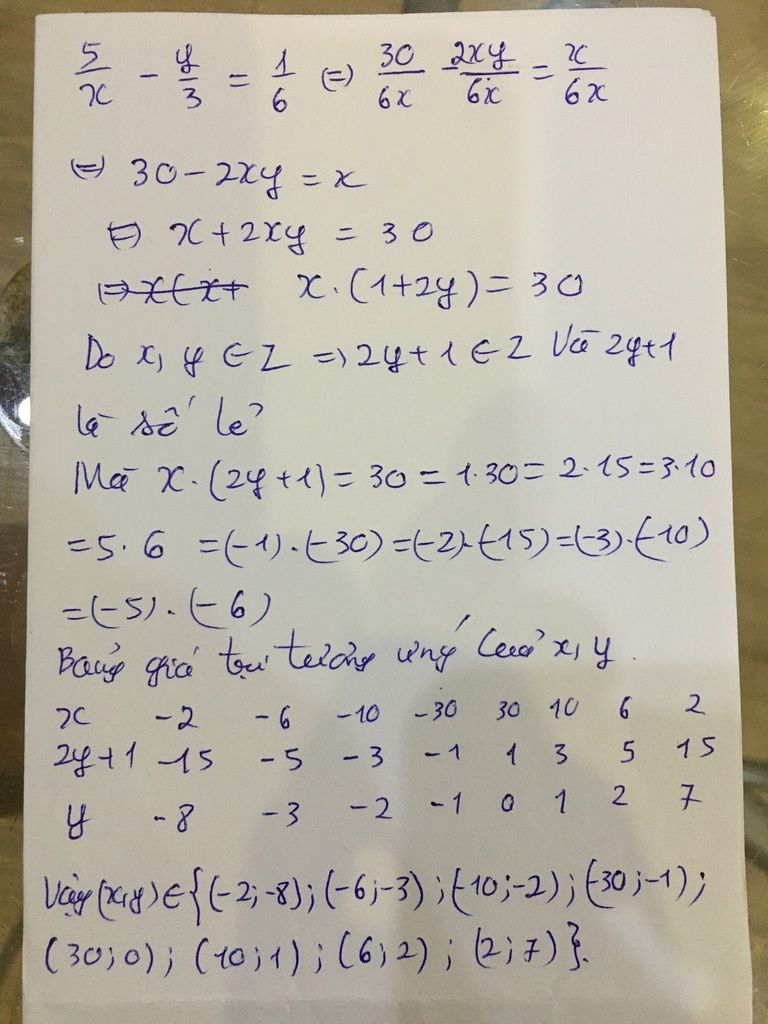 5/x - y/3 = 1/6 (=) 30/6x - 2xy/6x = x/6x
(=) 30 - 2xy = x
(=) x + 2xy = 30
(=) x(x+ x.(1+2y) = 30
Do x, y ∈ Z => 2y+1 ∈ Z Và 2y+1
là số lẻ
Mà x.(2y+1) = 30 = 1.30 = 2.15 = 3.10
= 5.6 = (-1).(-30) = (-2).(-15) = (-3).(-10)
= (-5).(-6)
Bảng giá trị tương ứng của x, y.
x -2 -6 -10 -30 30 10 6 2
2y+1 -15 -5 -3 -1 1 3 5 15
y -8 -3 -2 -1 0 1 2 7
Vậy (x,y) ∈ {(-2;-8); (-6;-3); (-10;-2); (-30;-1);
(30;0); (10;1); (6;2); (2;7)}.